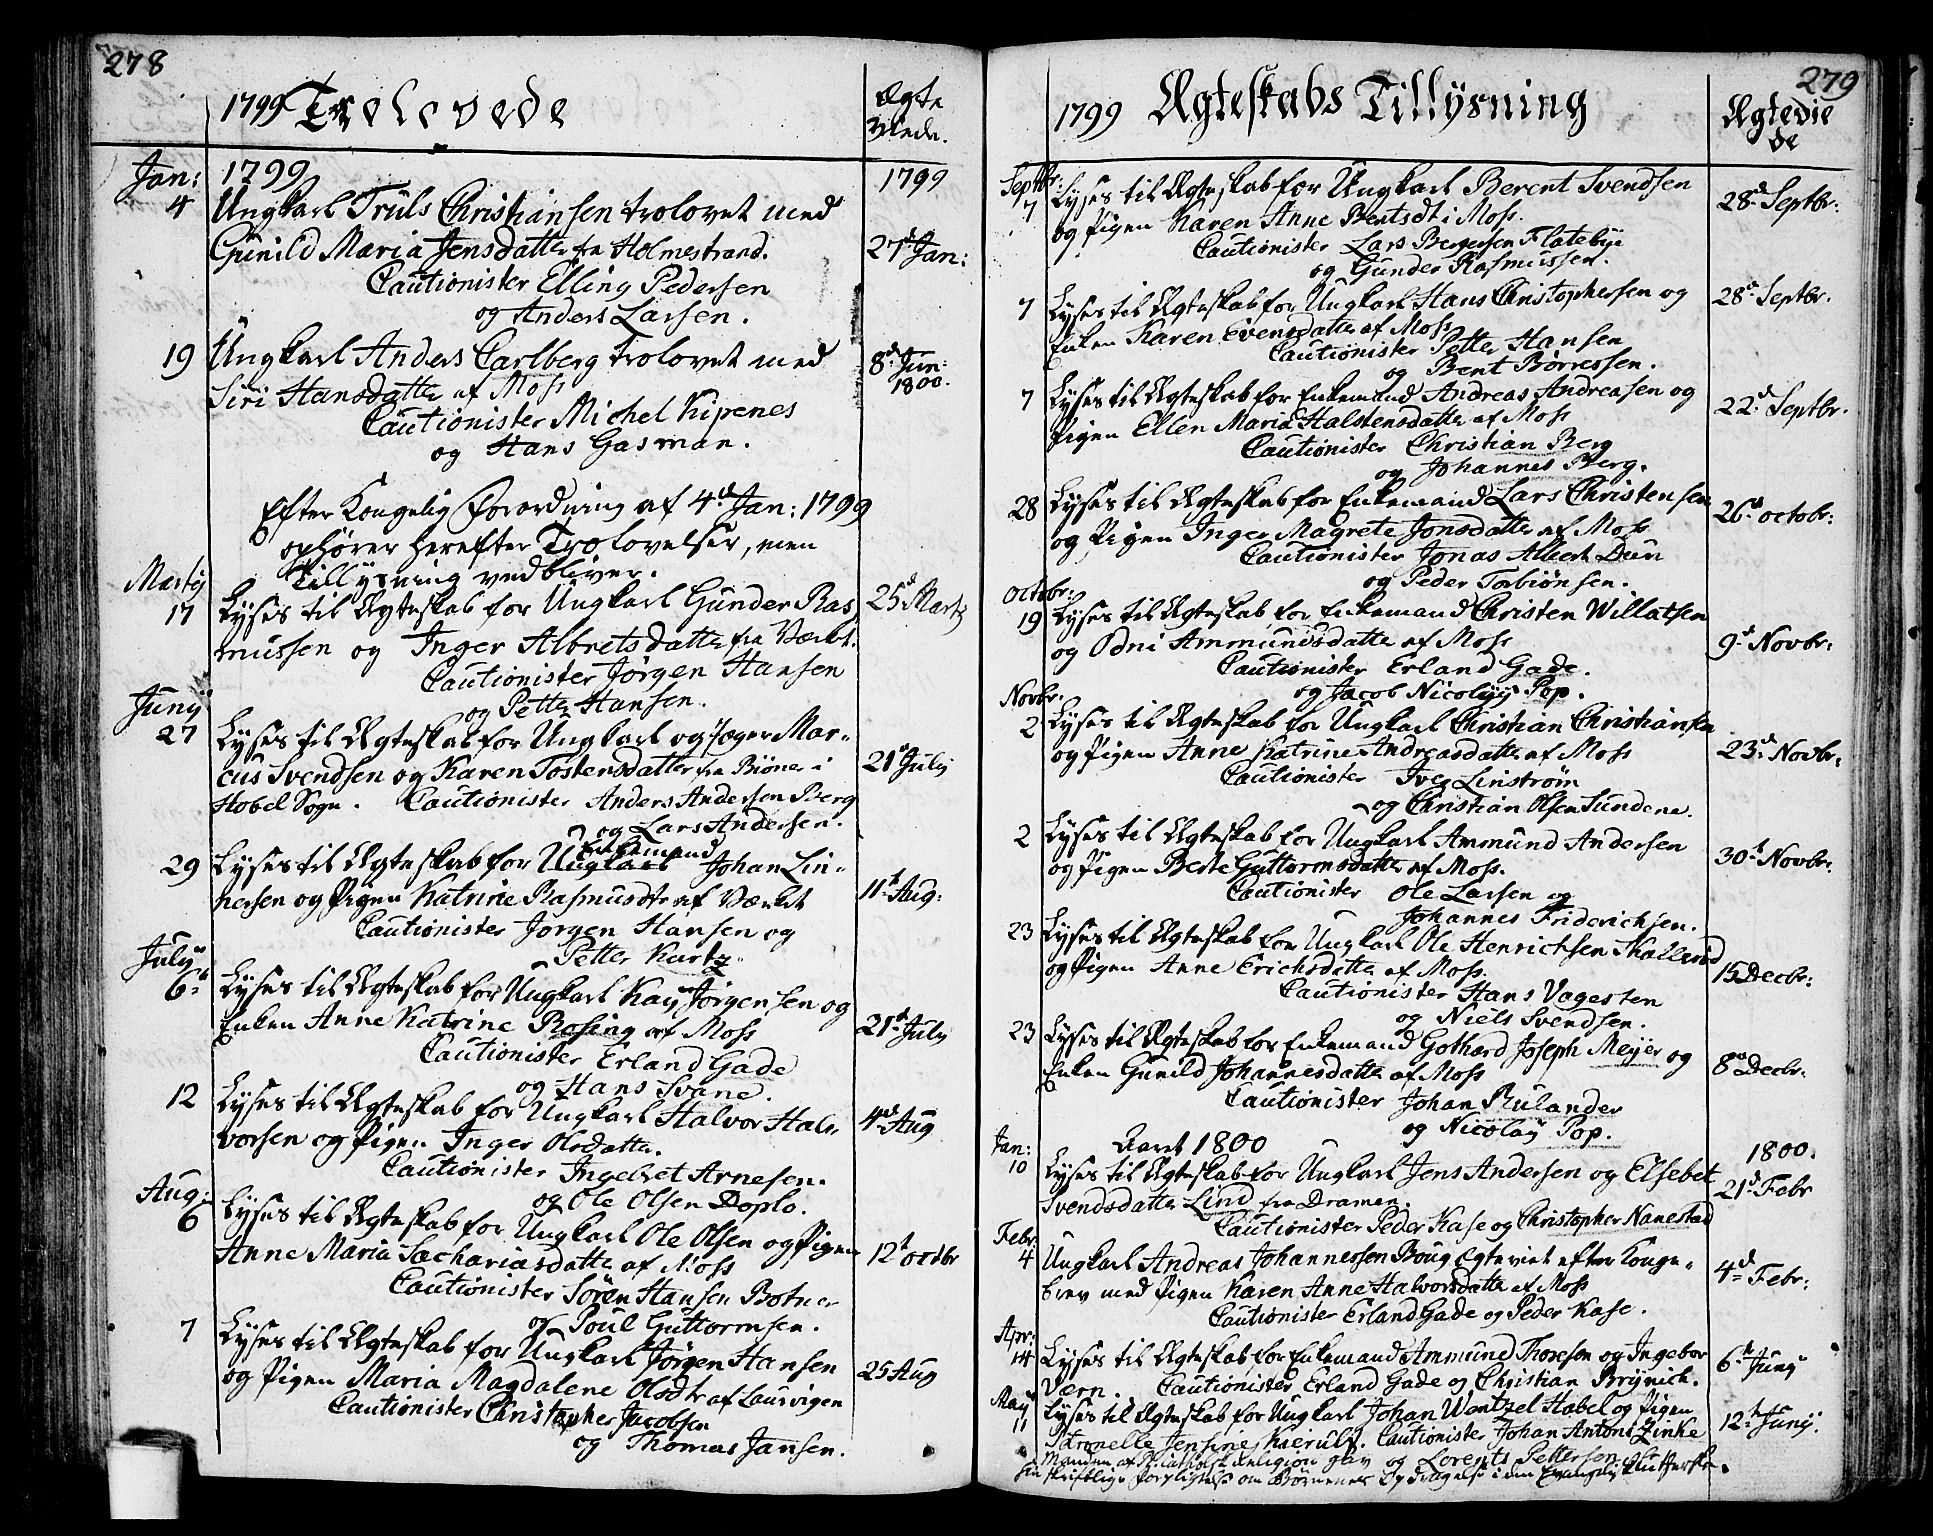 278
1799 Trolovede
Ægte Viede.
Jan: 1799 1799
4 Ungkarl Truls Christiansen trolovet med
Gunild Maria Jensdatter fra Holmestrand. 27d Jan:
Cautionister Elling Pedersen
og Anders Larsen.
19 Ungkarl Anders Carlberg trolovet med 8d Jun: 1800.
Siri Hansdatter af Moss
Cautionister Michel Kipenes
og Hans Gasman.
Efter Kongelig Forordning af 4d Jan: 1799
ophører herefter Trolovelser, men
Tillysning vedbliver.
Martij
17 Lyses til Ægteskab for Ungkarl Gunder Ras 25d Martj
mussen og Inger Albretsdatter fra Værket.
Cautionister Jørgen Hansen
og Petter Hansen.
Junij
27 Lyses til Ægteskab for Ungkarl og Jæger Mar-
cus Svendsen og Karen Tostensdatter fra Biøner i 21d July
Hobel Sogn. Cautionister Anders Andersen Berg
og Lars Andersen.
Enkemand
29 Lyses til Ægteskab for Ungkarl Johan Lin-
hersen og Pigen Katrine Rasmusdtr af Værket 11t Aug:
Cautionister Jørgen Hansen og
Petter Kurtz.
July
6t Lyses til Ægteskab for Ungkarl Kay Jørgensen og
Enken Anne Katrine Rosing af Moss 21d July
Cautionister Erland Gade
og Hans Svane.
12 Lyses til Ægteskab for Ungkarl Halvor Hal- 4d Aug
vorsen og Pigen Inger Olsdatter.
Cautionister Ingebret Arnesen.
og Ole Olsen Doplo.
Aug:
6 Lyses til Ægteskab for Ungkarl Ole Olsen og Pigen
Anne Maria Sachariasdatter af Moss 12t octbr
Cautionister Søren Hansen Botner
og Poul Guttormsen.
7 Lyses til Ægteskab for Ungkarl Jørgen Hansen
og Pigen Maria Magdalene Olsdtr af Laurvigen 25 Aug
Cautionister Christopher Jacobsen
og Thomas Jansen.
279
1799 Ægteskabs Tillysning
Ægtevie
de
Septbr:
7 Lyses til Ægteskab for Ungkarl Berent Svendsen 28d Septbr:
og Pigen Karen Anne Bentsdt i Moss.
Cautionister Lars Bergersen Flatebye
og Gunder Rasmussen.
7 Lyses til Ægteskab for Ungkarl Hans Christophersen og 28d Septbr.
Enken Karen Evensdatter af Moss
Cautionister Petter Hansen
og Bent Børresen.
7 Lyses til Ægteskab for Enkemand Andreas Andreasen og
Pigen Ellen Maria Halstensdatter af Moss 22d Septbr.
Cautionister Christian Berg
og Johannes Berg.
28 Lyses til Ægteskab for Enkemand Lars Christensen
og Pigen Inger Magrete Jonsdatter af Moss 26d octobr:
Cautionister Jonas Albert Dun
og Peder Torbiønsen.
octobr:
19 Lyses til Ægteskab for Enkemand Christen Willatsen
og Odni Ammundsdatter af Moss 9d Novbr:
Cautionister Erland Gade.
og Jacob Nicolay Pop.
Novbr:
2 Lyses til Ægteskab for Ungkarl Christian Christiansen
og Pigen Anne Katrine Andreasdatter af Moss 23d Novbr:
Cautionister Iver Linstrøm
og Christian Olsen Sundene.
2 Lyses til Ægteskab for Ungkarl Ammund Andersen
og Pigen Berte Guttormsdatter af Moss. 30t Novbr:
Cautionister Ole Larsen og
Johannes Friderichsen.
23 Lyses til Ægteskab for Ungkarl Ole Henrichsen Skallerud
og Pigen Anne Erichsdatter af Moss. 15 Decbr:
Cautionister Hans Vagesten
og Niels Svendsen.
23 Lyses til Ægteskab for Enkemand Gothard Joseph Meyer og
Enken Gunild Johannesdatter af Moss 8d Decbr:
Cautionister Johan Rulander
og Nicolay Pop.
Jan: Aaret 1800 1800.
10 Lyses til Ægteskab for Ungkarl Jens Andersen og Elsebet
Svendsdatter Lind fra Dramen. 21d Febr
Cautionister Peder Kase og Christopher Nanestad
Febr:
4 Ungkarl Andreas Johannessen Boug Egteviet efter Konge-
brev med Pigen Karen Anne Halvorsdatter af Moss 4d Febr:
Cautionister Erland Gade og Peder Kase.
Apr:
14 Lyses til Ægteskab for Enkemand Ammund Thoresen og Ingebor 6te Junij
Værn. Cautionister Erland Gade og Christian Brynich.
May
11 Lyses til Ægteskab for Ungkarl Johan Wentzel Habel og Pigen
Petronelle Jensine Kierulf. Cautionister Johan Antoni Zinke 12t Junij.
Manden af Catholsk Religion gav og Lorents Pettersen
sin skriftlige forpligtelse om Børnenes Opdragelse i den Evangelisk Lutherske.